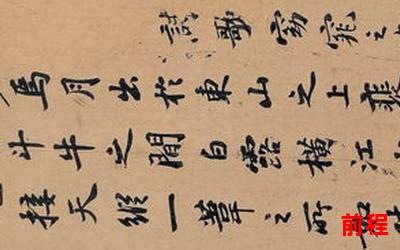 詩歌窈窕之
焉月出於東山之上
斗牛之間白露橫江
接天縱一葦之所如
前程